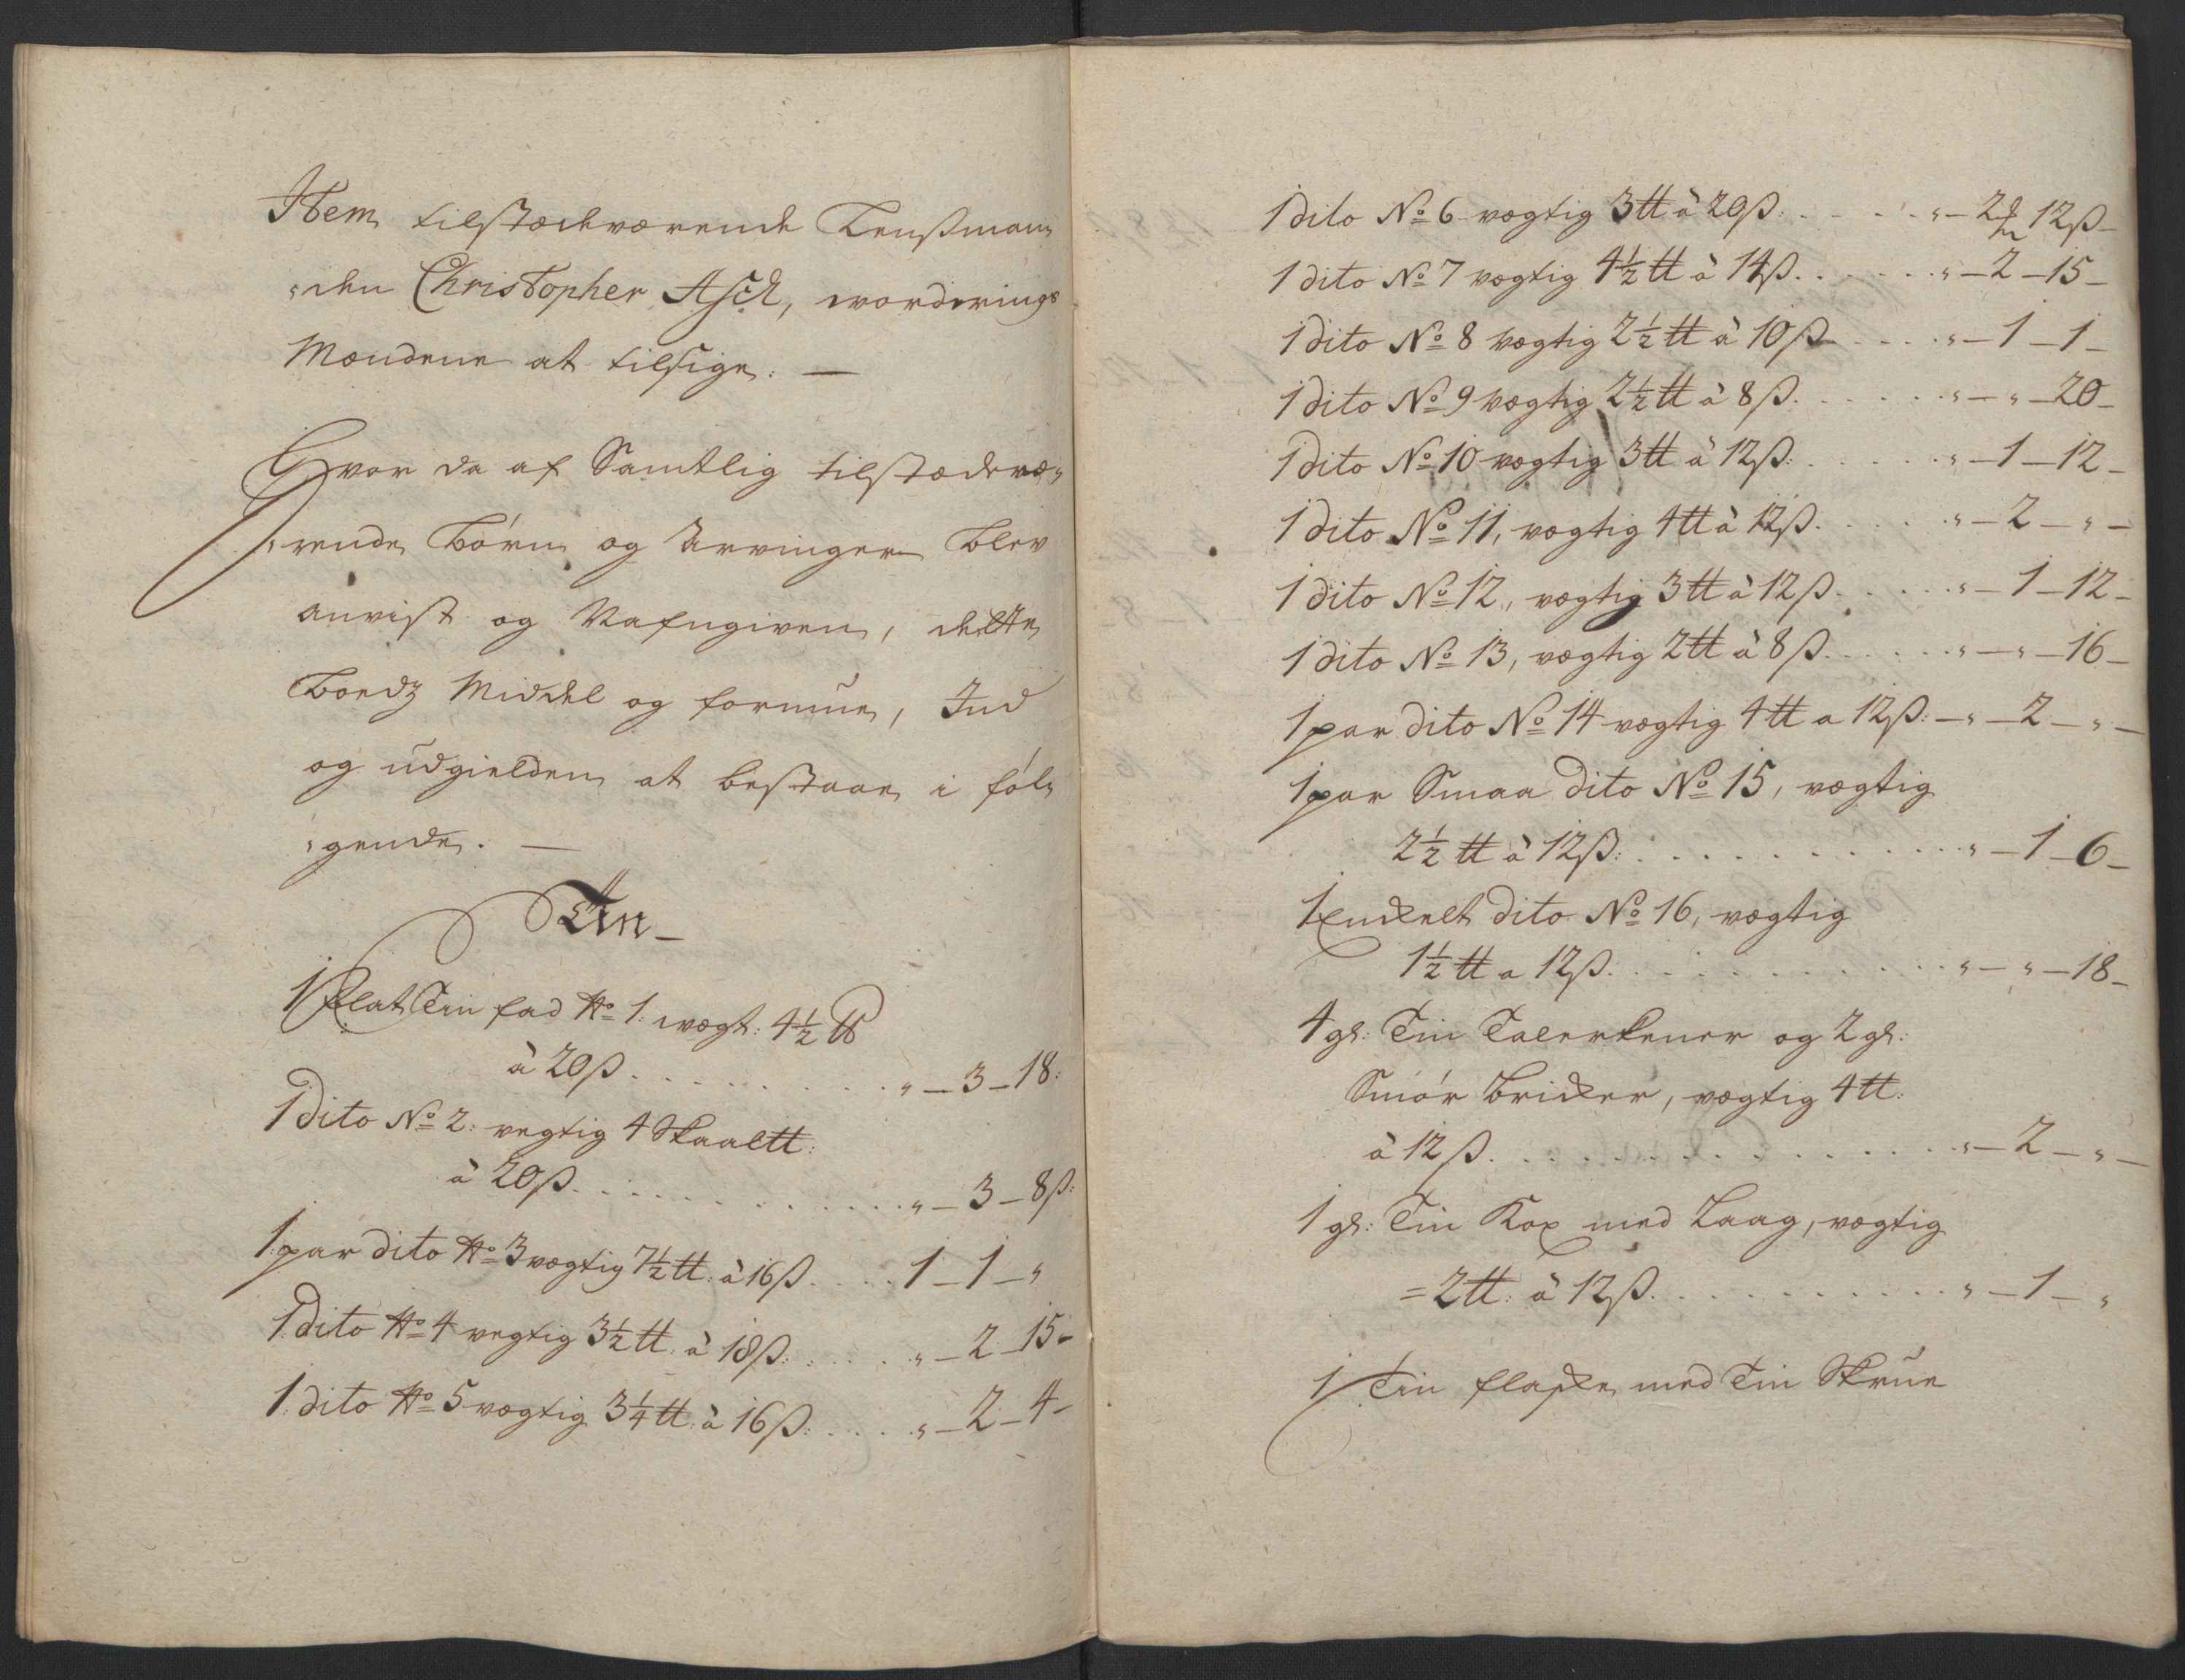 Item tilstædeværende Lensman„
„den Christopher Asch, worderings
Mændene at tilsige: —
Hvor da af Samtlig tilstædevæ„
„rende Børn og Arvinger blev
anvist og Nafngiven, dette
Boedz Middel og formue, Ind
og udgielden at bestaae i føl„
„gende. —
Tin –
1 flat Tin fad No 1: wægt: 4½ ℔
à 20ß . . . . . . . . . . „ — 3 – 18:
1 dito No 2: vegtig 4 Skaal℔:
à 20ß . . . . . . . . . . . . . „ — 3 – 8ß:
1 par dito No 3 vægtig 7½ ℔: à 16ß . . . . 1 – 1 – „
1 dito No 4 vegtig 3½ ℔: à 18ß: . . . . . „ – 2 – 15 –
1: dito No 5 vægtig 3¼ ℔: à 16ß: . . . . „ – 2 – 4 –
1 dito No 6 vægtig 3℔ à 20ß: . . . . . „ – 2 12ß –
1 dito No 7 vægtig 4½ ℔ à 14ß . . . . . . „ – 2 – 15 –
1 dito No 8 vægtig 2½ ℔ à 10ß . . . . „ – 1 – 1 –
1 dito No 9 vægtig 2½ ℔ à 8ß . . . . . . „ – „ – 20 –
1 dito No 10 vægtig 3℔ à 12ß: . . . . . . „ – 1 – 12 –
1 dito No 11, vægtig 4℔ à 12ß . . . . . „ – 2 – „ –
1 dito No 12, vægtig 3℔ à 12ß . . . . . „ – 1 – 12 –
1 dito No 13, vægtig 2℔ à 8ß . . . . . . „ – „ – 16 –
1 par dito No 14 vægtig 4℔ a 12ß: – „ – 2 – „ –
1 par Smaa dito No 15, vægtig
2½ ℔ à 12ß: . . . . . . . . . . . . „ – 1 – 6 –
1 Enckelt dito No 16, vægtig
1½ ℔ a 12ß . . . . . . . . . . . . „ – „ – 18 –
4 gl: Tin Talerkener og 2 gl:
Smør Bricker, vægtig 4℔:
à 12ß . . . . . . . . . . . . . . . „ – 2 – „ –
1 gl: Tin Kop med Laag, vægtig
= 2℔: à 12ß . . . . . . . . . . . „ – 1 – „
1 Tin flaske med Tin Skrue